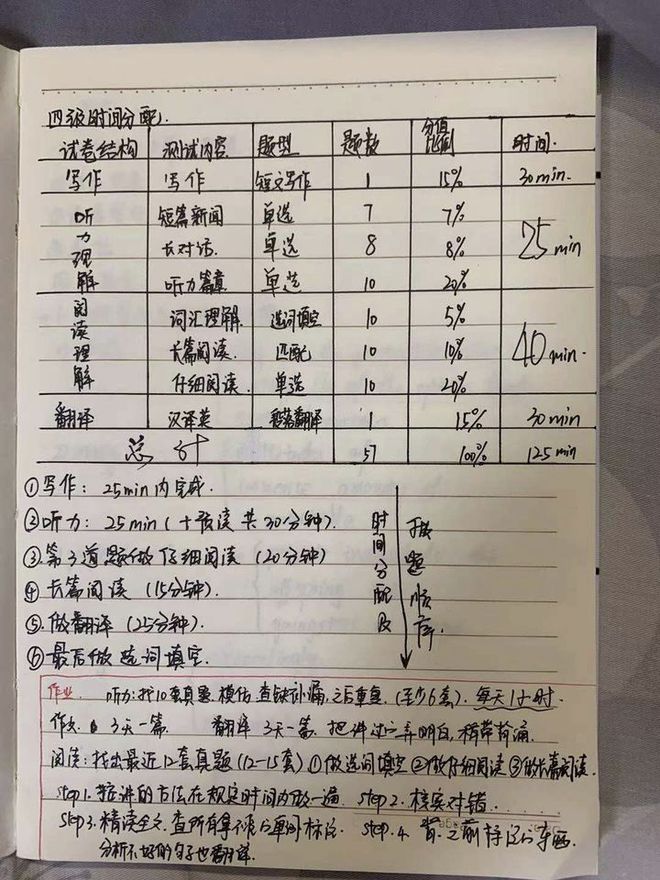 四级时间分配.
试卷结构 测试内容 题型 题数 分值比例 时间.
写作 写作 短文写作 1 15% 30min.
听力理解 短篇新闻 单选 7 7% 25min
长对话. 单选 8 8%
听力篇章 单选 10 20%
阅读理解 词汇理解. 选词填空 10 5% 40min.
长篇阅读. 匹配 10 10%
仔细阅读. 单选 10 20%
翻译 汉译英 段落翻译 1 15% 30min
总计 57 100% 125min
①写作: 25min内完成.
②听力: 25min(+预读共30分钟).
③第3道题做仔细阅读(20分钟)
④长篇阅读(15分钟).
⑤.做翻译(25分钟).
⑥最后做选词填空.
时间分配及
做题顺序.
作业. 听力:找10套真题.模仿.查缺补漏.之后重复.(至少6套).每天1小时.
作文 3天一篇. 翻译 3天一篇.把讲过的弄明白,稍带背诵.
阅读:找出最近12套真题(12-15套)①做选词填空②做仔细阅读③做长篇阅读.
Step1.按讲的方法在规定时间内做一遍. Step2.核实对错.
Step3.精读全文.查所有拿不准的单词标记. Step.4 背之前标记的东西.
分析不好的句子也翻译.